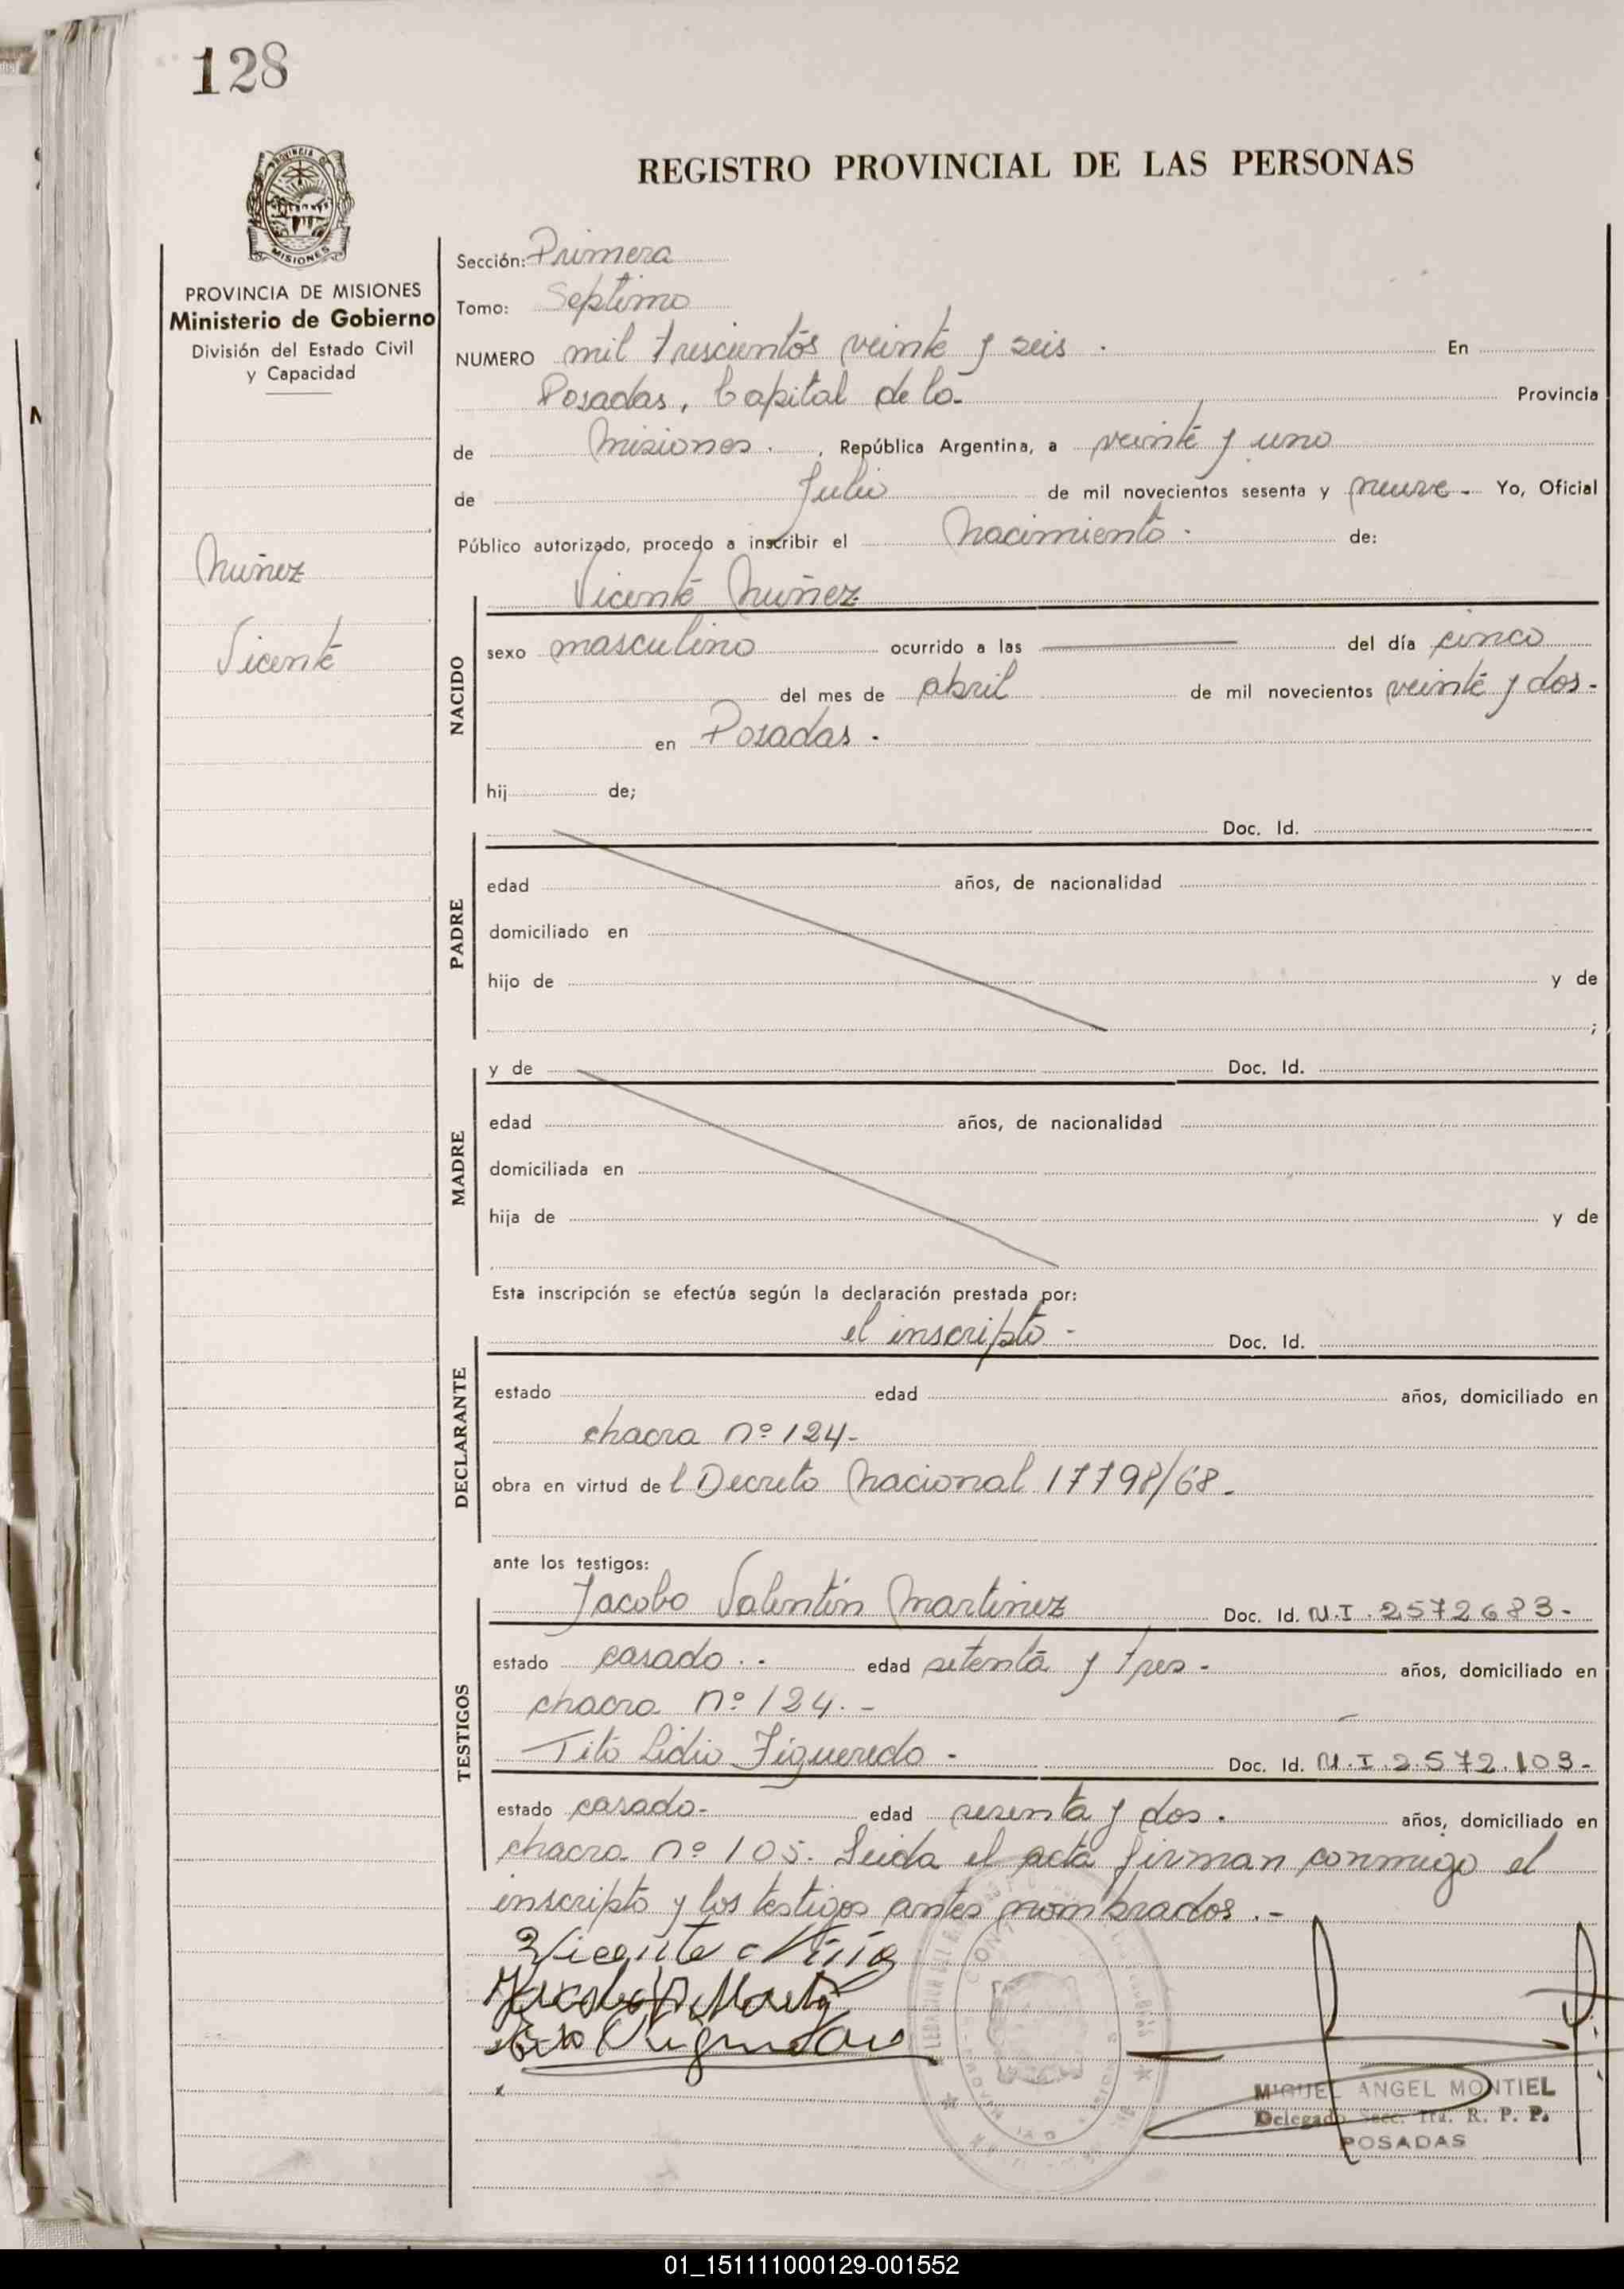 128
PROVINCIA DE
MISIONES
REGISTRO PROVINCIAL DE LAS PERSONAS
PROVINCIA DE MISIONES
Ministerio de Gobierno
División del Estado Civil
y Capacidad
Nuñez
Vicente
Sección: Primera
Tomo: Septimo
NUMERO mil trescientos veinte y seis . En
Posadas, Capital de la - Provincia
de Misiones . , República Argentina, a veinte y uno
de Julio de mil novecientos sesenta y nueve - Yo, Oficial
Público autorizado, procedo a inscribir el Nacimiento - de:
Vicente Nuñez
NACIDO
sexo masculino ocurrido a las — del día cinco
del mes de abril de mil novecientos veinte y dos -
en Posadas .
hij de;
PADRE
Doc. Id.
edad años, de nacionalidad
domiciliado en
hijo de y de
;
MADRE
y de Doc. Id.
edad años, de nacionalidad
domiciliada en
hija de y de
Esta inscripción se efectúa según la declaración prestada por:
DECLARANTE
el inscripto - Doc. Id.
estado edad años, domiciliado en
chacra nº 124 -
obra en virtud de l Decreto Nacional 17798/68 -
ante los testigos:
TESTIGOS
Jacobo Valentín Martinez Doc. Id. M.I. 2572683 -
estado casado . - edad setenta y tres - años, domiciliado en
chacra nº 124. -
Tito Lidio Figueredo - Doc. Id. M.I. 2.572.103 -
estado casado - edad sesenta y dos . años, domiciliado en
chacra nº 105. Leida el acta firman conmigo el
inscripto y los testigos antes nombrados . -
Vicente
MIGUEL ANGEL MONTIEL
Delegado Secc. 1ra. R. P. P.
POSADAS
01_151111000129-001552